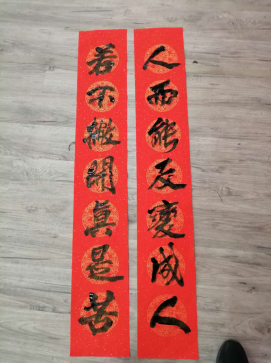 人而能反變成人
若不撇開真是苦